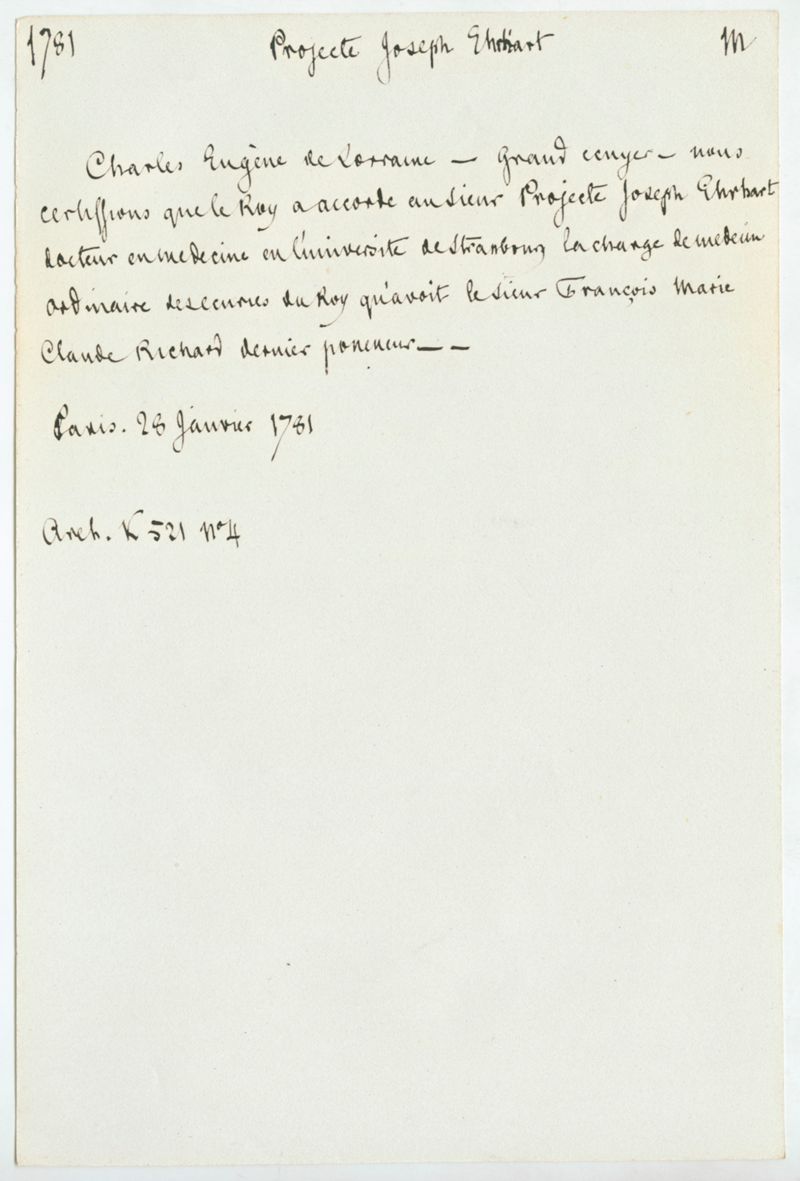 1781 Projecte Joseph Ehrhart M
Charles Eugène de Lorraine — Grand ecuyer — nous
certiffions que le Roy a accorde au sieur Projecte Joseph Ehrhart
docteur en medecine en l'université de Strasbourg la charge de medecin
ordinaire des ecuries du Roy qu'avoit le sieur François Marie
Claude Richard dernier — —
Paris. 28 Janvier 1781
Arch. K 521 nº 4